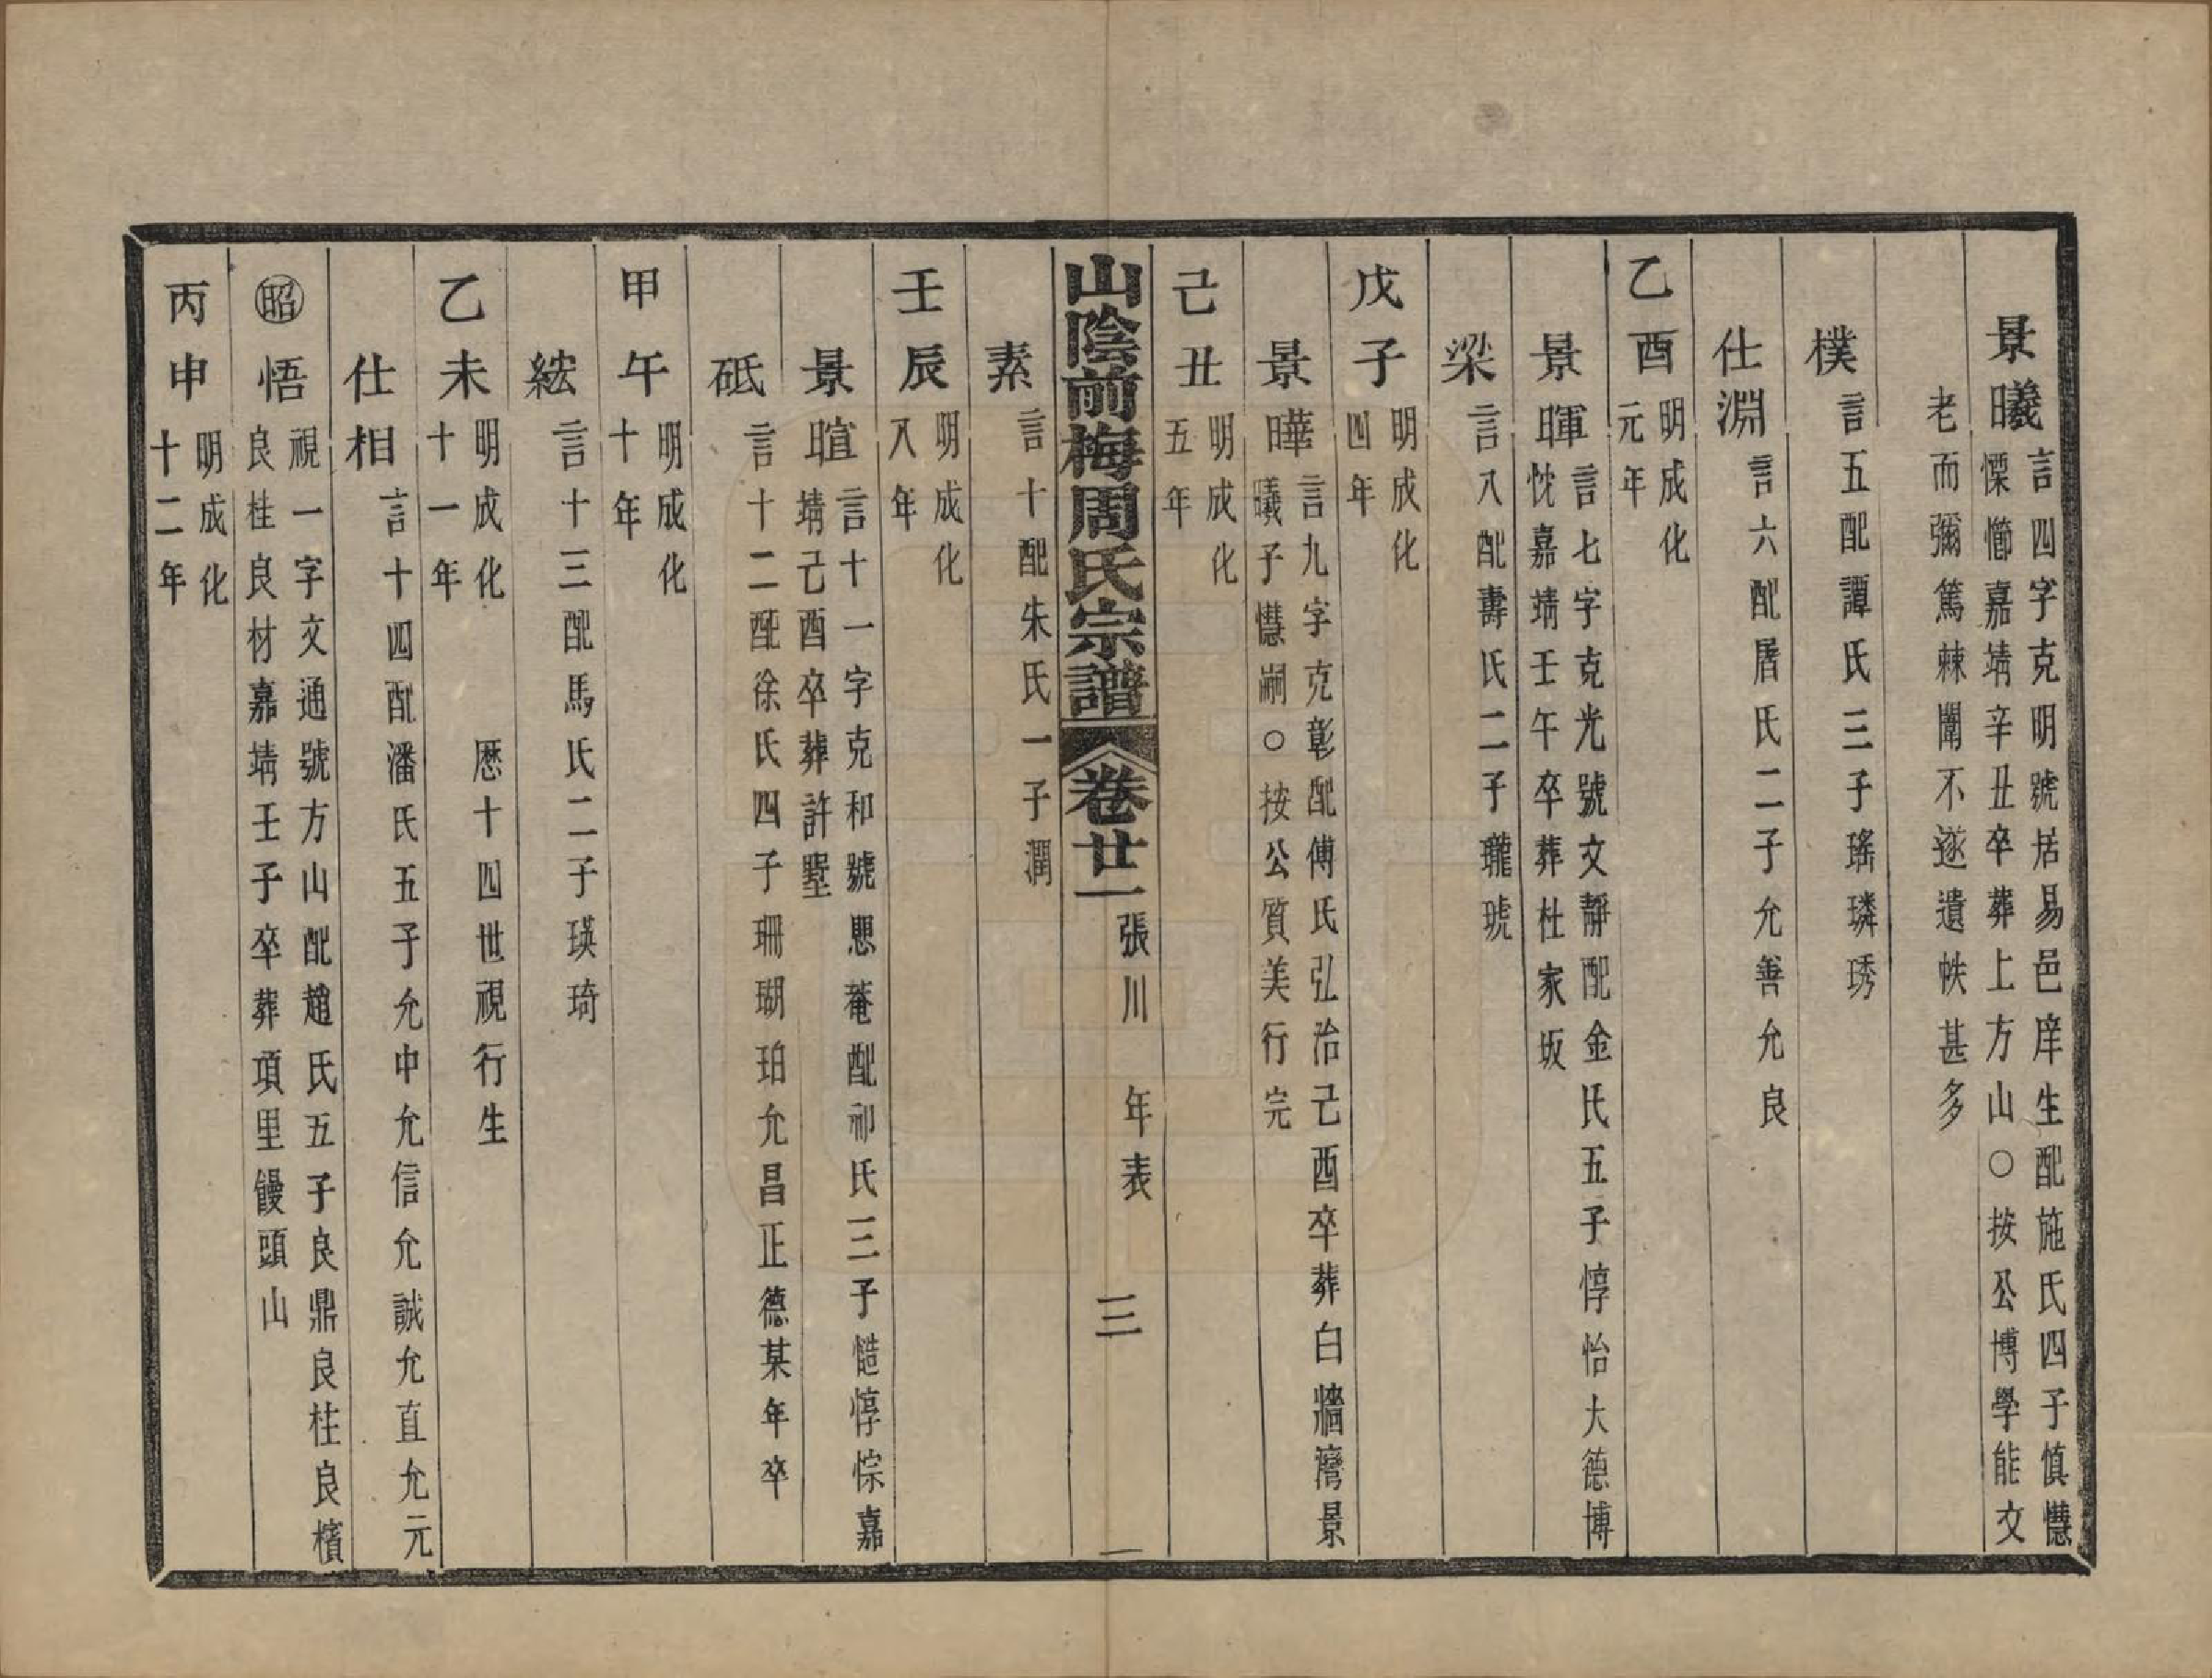 景曦言四字克明號居易邑庠生配施氏四子慎慧
慄㦢嘉靖辛丑卒葬上方山○按公博學能文
老而彌篤棘闈不遂遺帙甚多
樸言五配譚氏三子瑤璘琇
仕淵言六配屠氏二子允善允良
乙酉明成化
元年
景暉言七字克光號文靜配金氏五子惇怡大德博
忱嘉靖壬午卒葬杜家坂
梁言八配壽氏二子瓏琥
戊子明成化
四年
景曄言九字克彰配傅氏弘治己酉卒葬白牆灣景
曦子慧嗣○按公質美行完
己丑明成化
五年
山陰前梅周氏宗譜 卷廿一 張川 年表 三
素言十配朱氏一子潤
壬辰明成化
八年
景暄言十一字克和號思菴配祁氏三子慥惇悰嘉
靖己酉卒葬許墅
砥言十二配徐氏四子珊瑚珀允昌正德某年卒
甲午明成化
十年
紘言十三配馬氏二子瑛琦
乙未明成化
十一年 厯十四世視行生
仕相言十四配潘氏五子允中允信允誠允直允元
昭悟視一字文通號方山配趙氏五子良鼎良柱良檳
良桂良材嘉靖壬子卒葬項里饅頭山
丙申明成化
十二年